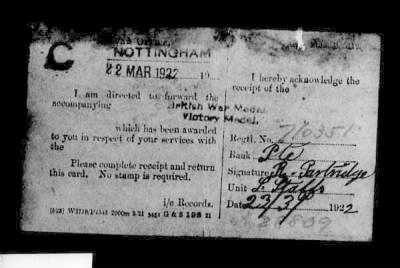 C
NOTTINGHAM
22 MAR 1922 19
I am directed to forward the
accompanying British War Medal.
Victory Medal.
which has been awarded
to you in respect of your services with
the
Please complete receipt and return
this card. No stamp is required.
i/c Records.
I hereby acknowledge the
receipt of the
Regtl. No.
Rank Pte
Signature R. Partridge
Unit S. Staffs
Date 23/3/ 1922